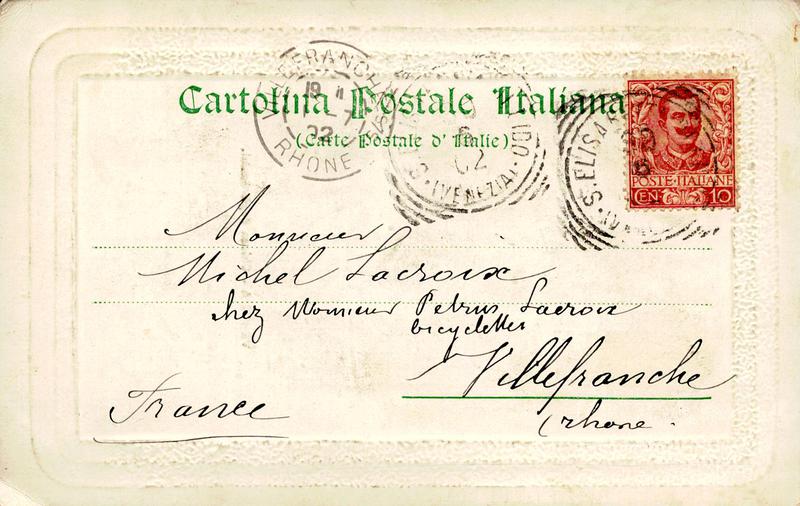 Cartolina Postale Italiana
(Carte Postale d'Italie)
VILLEFRANCHE S/ SAÔNE
RHONE
02
LIDO
(VENEZIA)
02
S. ELISAB
POSTE·ITALIANE
CEN 10
Monsieur
Michel Lacroix
chez Monsieur Petrus Lacroix
bicyclettes
Villefranche
France
(rhone.